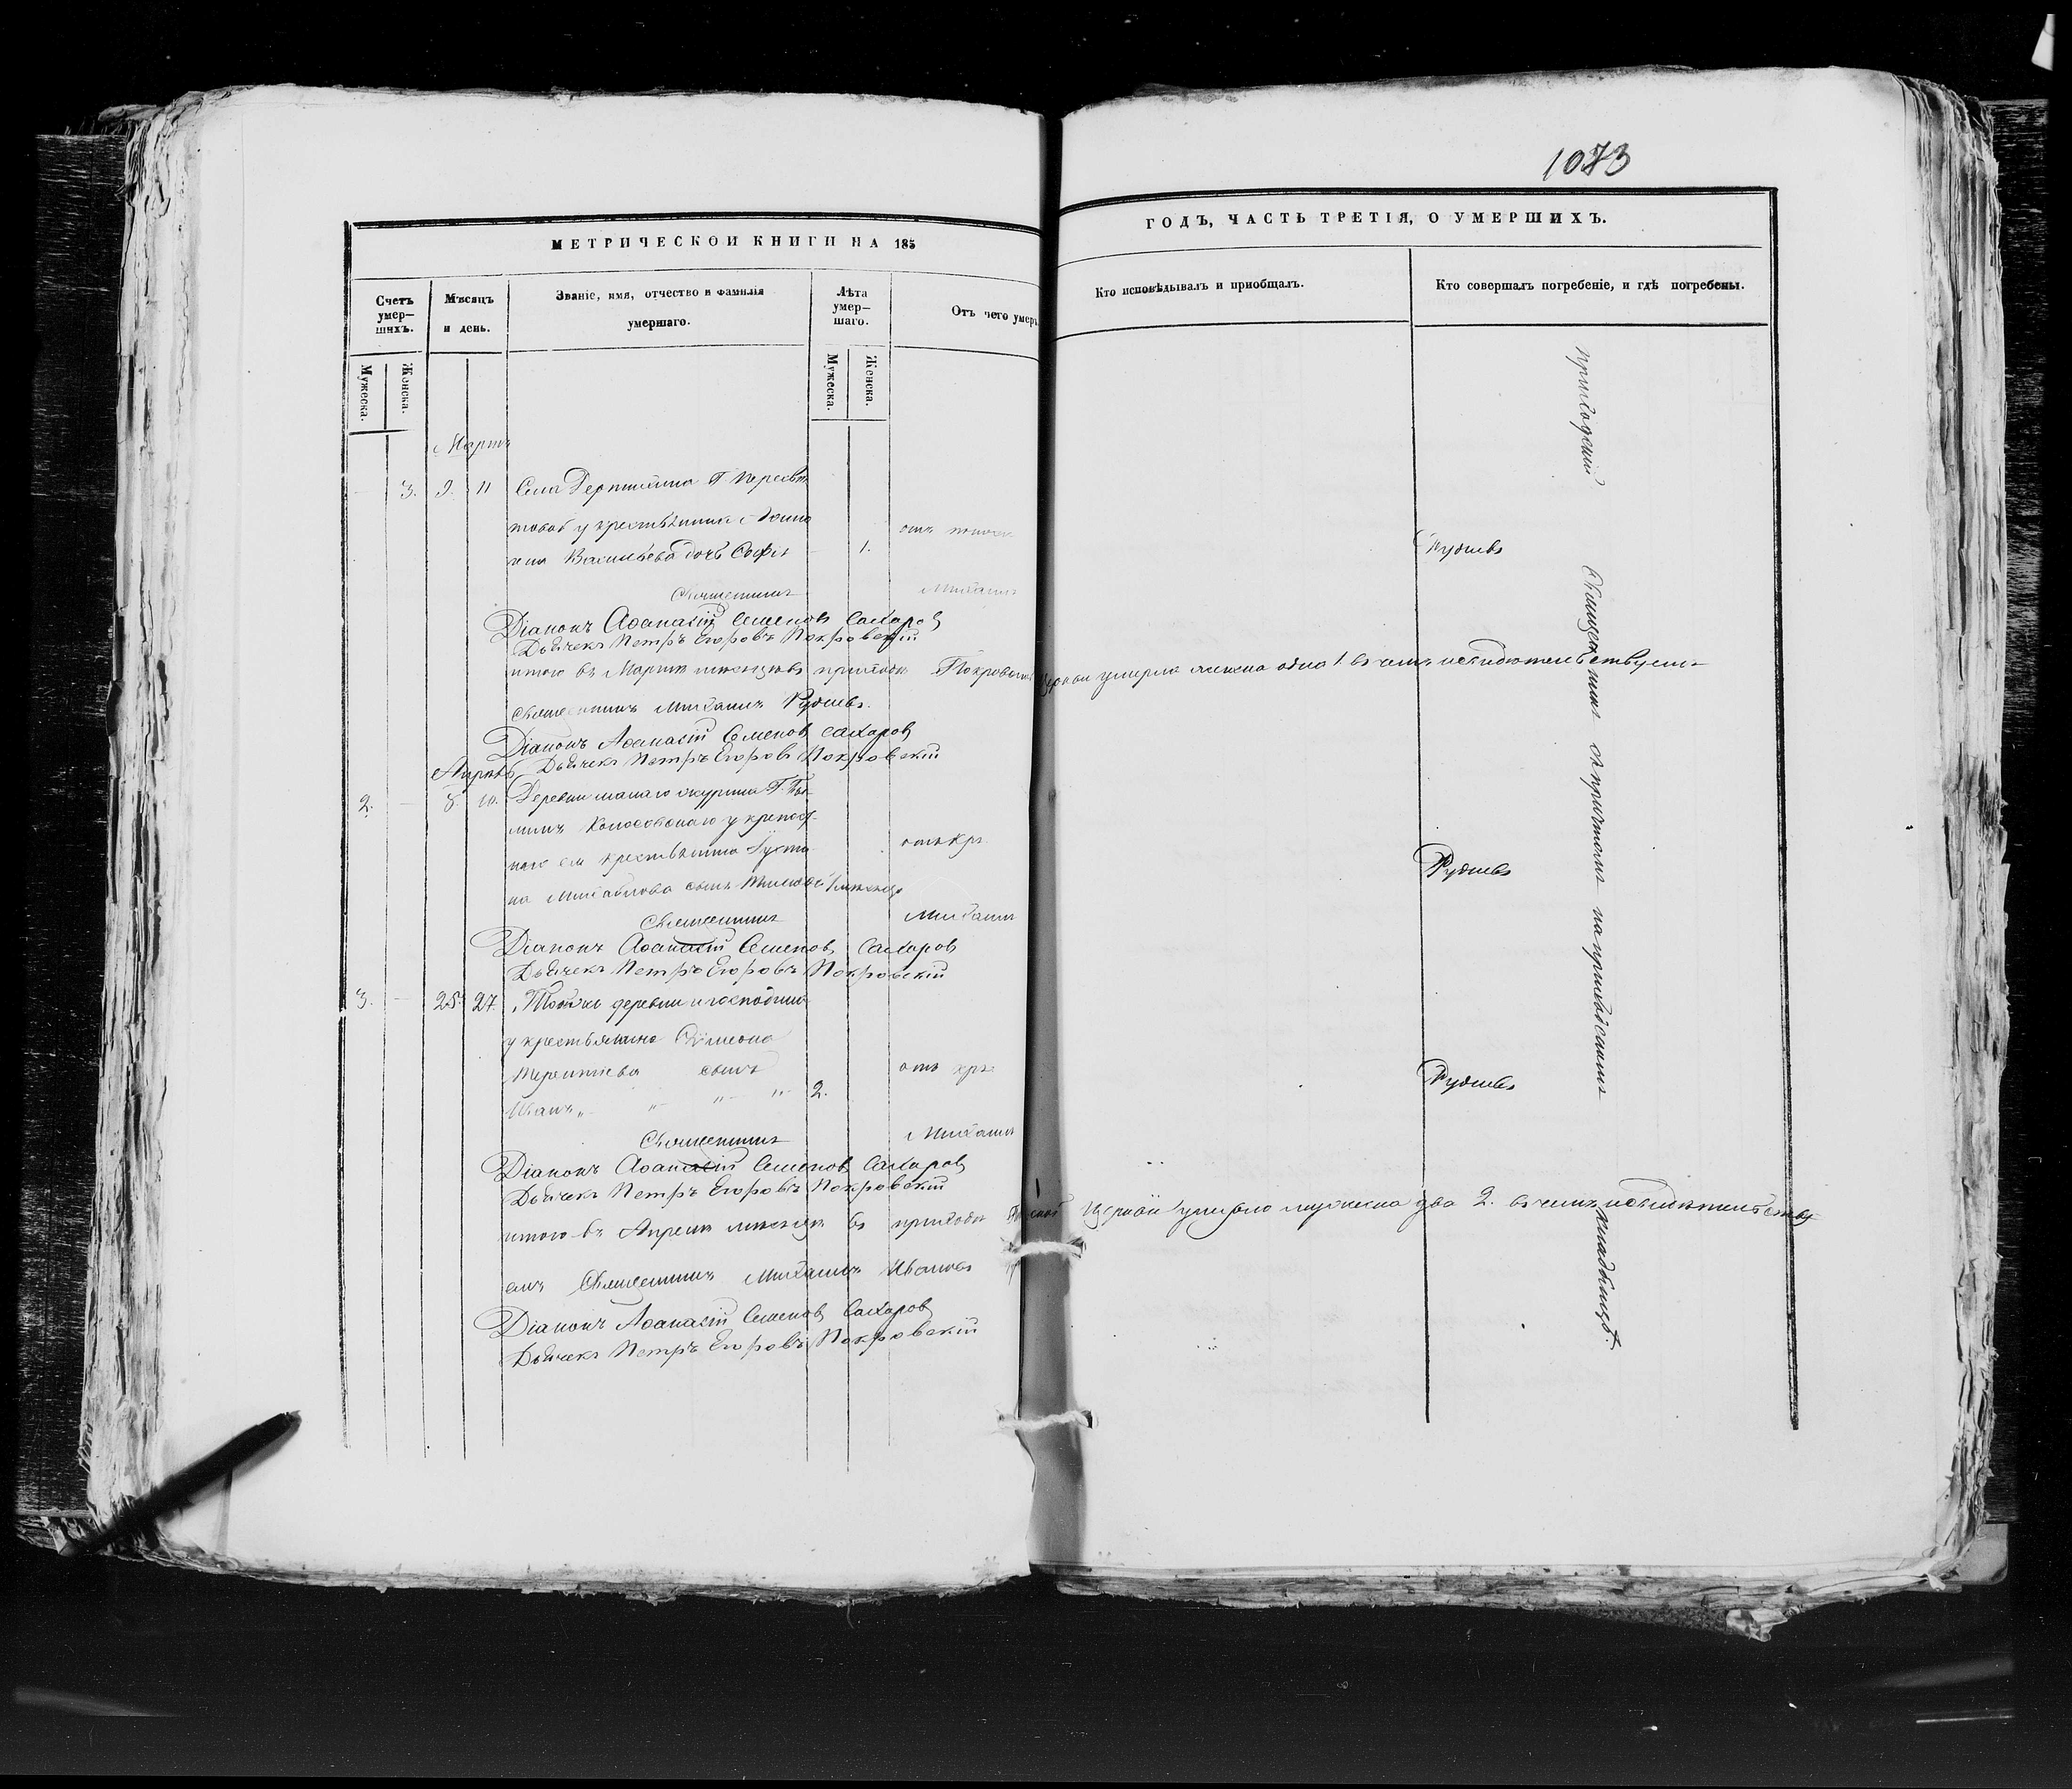 1073
МЕТРИЧЕСКОЙ КНИГИ НА 185
ГОДЪ, ЧАСТЬ ТРЕТІЯ, О УМЕРШИХЪ.
Счетъ умер–шихъ.
Мѣсяцъ и день.
Званіе, имя, отчество и фамилія умершаго.
Лѣта умер–шаго.
Отъ чего умеръ
Кто исповѣдывалъ и приобщалъ.
Кто совершалъ погребеніе, и гдѣ погребены.
Мужеска.
Женска.
Мужеска.
Женска.
Мартъ
3. 9. 11 Села
у крестьянина
Васильева дочь Софья 1.
Священникъ Михаилъ Рудневъ
Діаконъ Аѳанасій Семеновъ Сахаровъ
Дьячекъ Петръ Егоровъ Покровскій
итого въ Мартѣ мѣсяцѣ въ приходѣ Покровской церкви умерла женска одна 1. въ чемъ и свидѣтельствуемъ
Священникъ Михаилъ Рудневъ.
Діаконъ Аѳанасій Семеновъ Сахаровъ
Дьячекъ Петръ Егоровъ Покровскій
Апрѣль
2. – 8. 10. Деревни малаго
у крѣпост–
наго ея крестьянина
на Михайлова сынъ
Священникъ Михаилъ Рудневъ
Діаконъ Аѳанасій Семеновъ Сахаровъ
Дьячекъ Петръ Егоровъ Покровскій
3. – 25. 27. Той же деревни и госпожи
у крестьянина Сѵмеона
Терентіева сынъ
Иванъ „ „ „ „ 2.
Священникъ Михаилъ Рудневъ
Діаконъ Аѳанасій Семеновъ Сахаровъ
Дьячекъ Петръ Егоровъ Покровскій
итого въ Апрѣлѣ мѣсяцѣ въ приходѣ церкви умерло мужеска два 2. въ чемъ и свидѣтельству–
емъ Священникъ Михаилъ Ивановъ
Діаконъ Аѳанасій Семеновъ Сахаровъ
Дьячекъ Петръ Егоровъ Покровскій
приходскій Священникъ съ причтомъ на приходскомъ кладбищѣ.